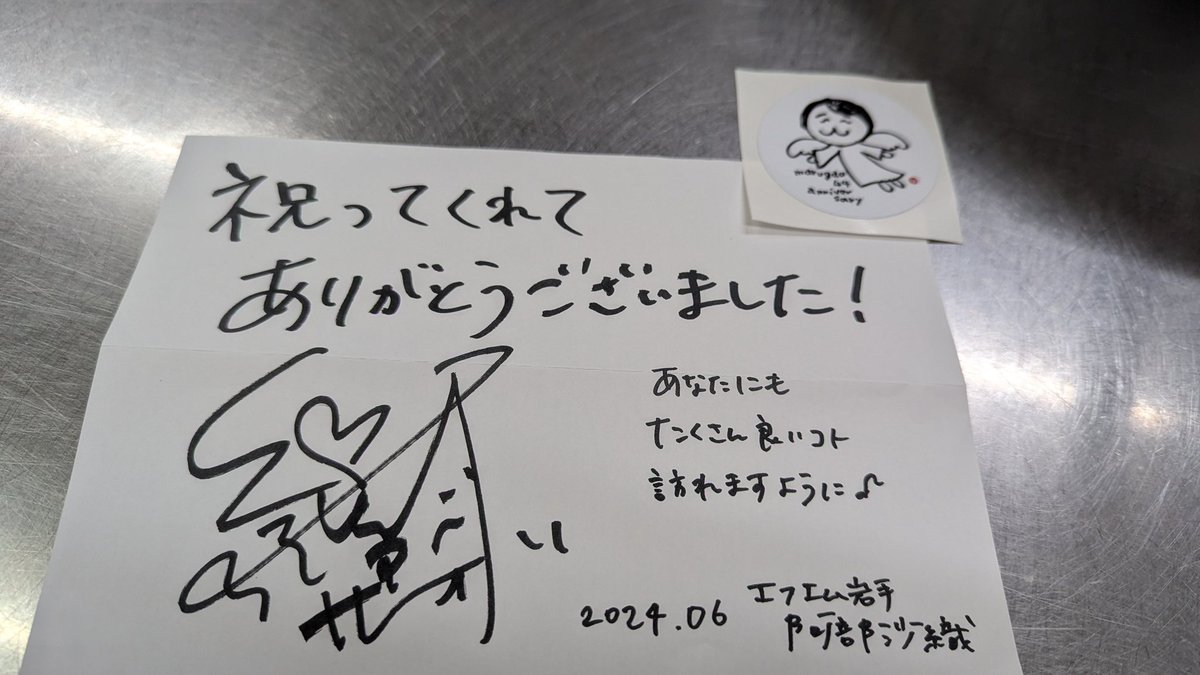 祝ってくれて
ありがとうございました！
あなたにも
たくさん良いコト
訪れますように♪
2024.06
エフエム岩手
阿部沙織
marugao
anniver
sary